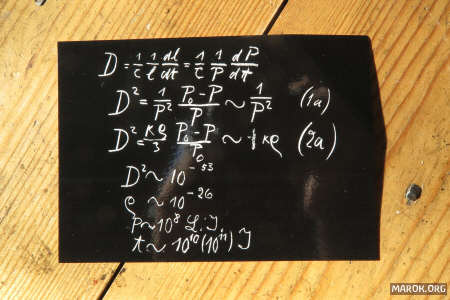 D = 1/c 1/l dl/dt = 1/c 1/P dP/dt
D² = 1/P² P₀-P/P ~ 1/P² (1a)
D² = κρ/3 P₀-P/P₀ ~ ⅓ κρ (2a)
D² ~ 10⁻⁵³
ρ ~ 10⁻²⁶
P ~ 10⁸ L.J.
t ~ 10¹⁰(10¹¹) J
MAROK.ORG